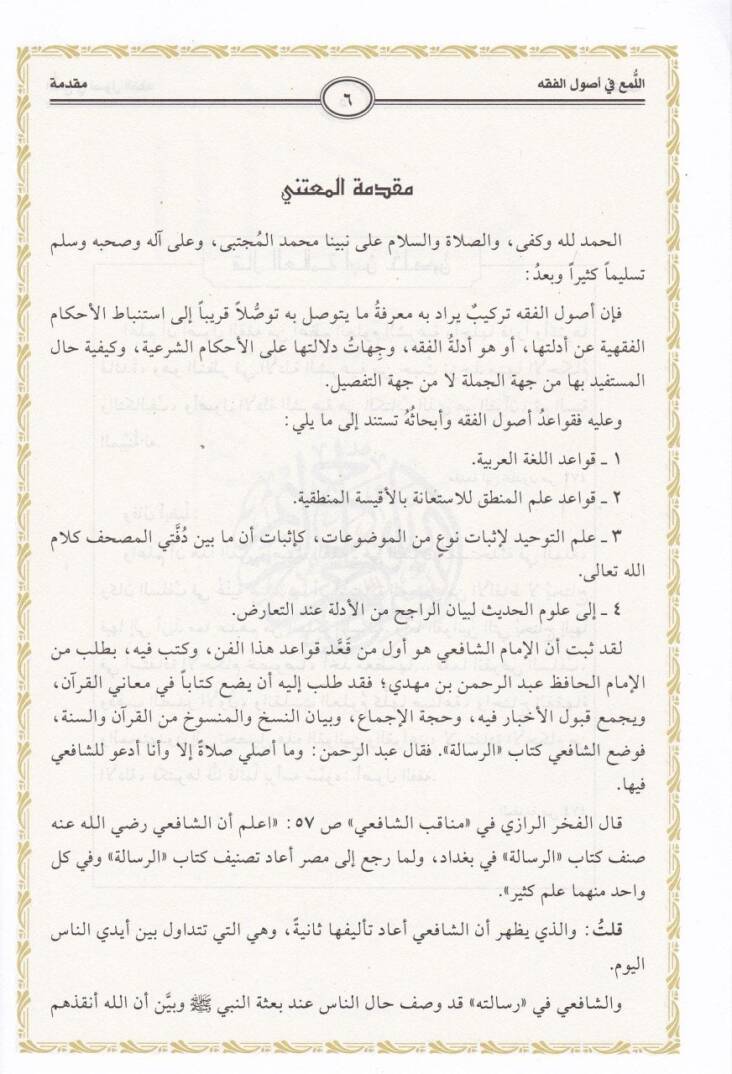 اللُّمع في أصول الفقه
٦
مقدمة
مقدمة المعتني
الحمد لله وكفى، والصلاة والسلام على نبينا محمد المُجتبى، وعلى آله وصحبه وسلم
تسليماً كثيراً وبعدُ:
فإن أصول الفقه تركيبٌ يراد به معرفةُ ما يتوصل به توصُّلاً قريباً إلى استنباط الأحكام
الفقهية عن أدلتها، أو هو أدلةُ الفقه، وجِهاتُ دلالتها على الأحكام الشرعية، وكيفية حال
المستفيد بها من جهة الجملة لا من جهة التفصيل.
وعليه فقواعدُ أصول الفقه وأبحاثُهُ تستند إلى ما يلي:
١ ـ قواعد اللغة العربية.
٢ ـ قواعد علم المنطق للاستعانة بالأقيسة المنطقية.
٣ ـ علم التوحيد لإثبات نوعٍ من الموضوعات، كإثبات أن ما بين دُفَّتي المصحف كلام
الله تعالى.
٤ ـ إلى علوم الحديث لبيان الراجح من الأدلة عند التعارض.
لقد ثبت أن الإمام الشافعي هو أول من قَعَّد قواعد هذا الفن، وكتب فيه، بطلب من
الإمام الحافظ عبد الرحمن بن مهدي؛ فقد طلب إليه أن يضع كتاباً في معاني القرآن،
ويجمع قبول الأخبار فيه، وحجة الإجماع، وبيان النسخ والمنسوخ من القرآن والسنة،
فوضع الشافعي كتاب «الرسالة». فقال عبد الرحمن: وما أصلي صلاةً إلا وأنا أدعو للشافعي
فيها.
قال الفخر الرازي في «مناقب الشافعي» ص ٥٧: «اعلم أن الشافعي رضي الله عنه
صنف كتاب «الرسالة» في بغداد، ولما رجع إلى مصر أعاد تصنيف كتاب «الرسالة» وفي كل
واحد منهما علم كثير».
قلتُ: والذي يظهر أن الشافعي أعاد تأليفها ثانيةً، وهي التي تتداول بين أيدي الناس
اليوم.
والشافعي في «رسالته» قد وصف حال الناس عند بعثة النبي ﷺ وبيَّن أن الله أنقذهم